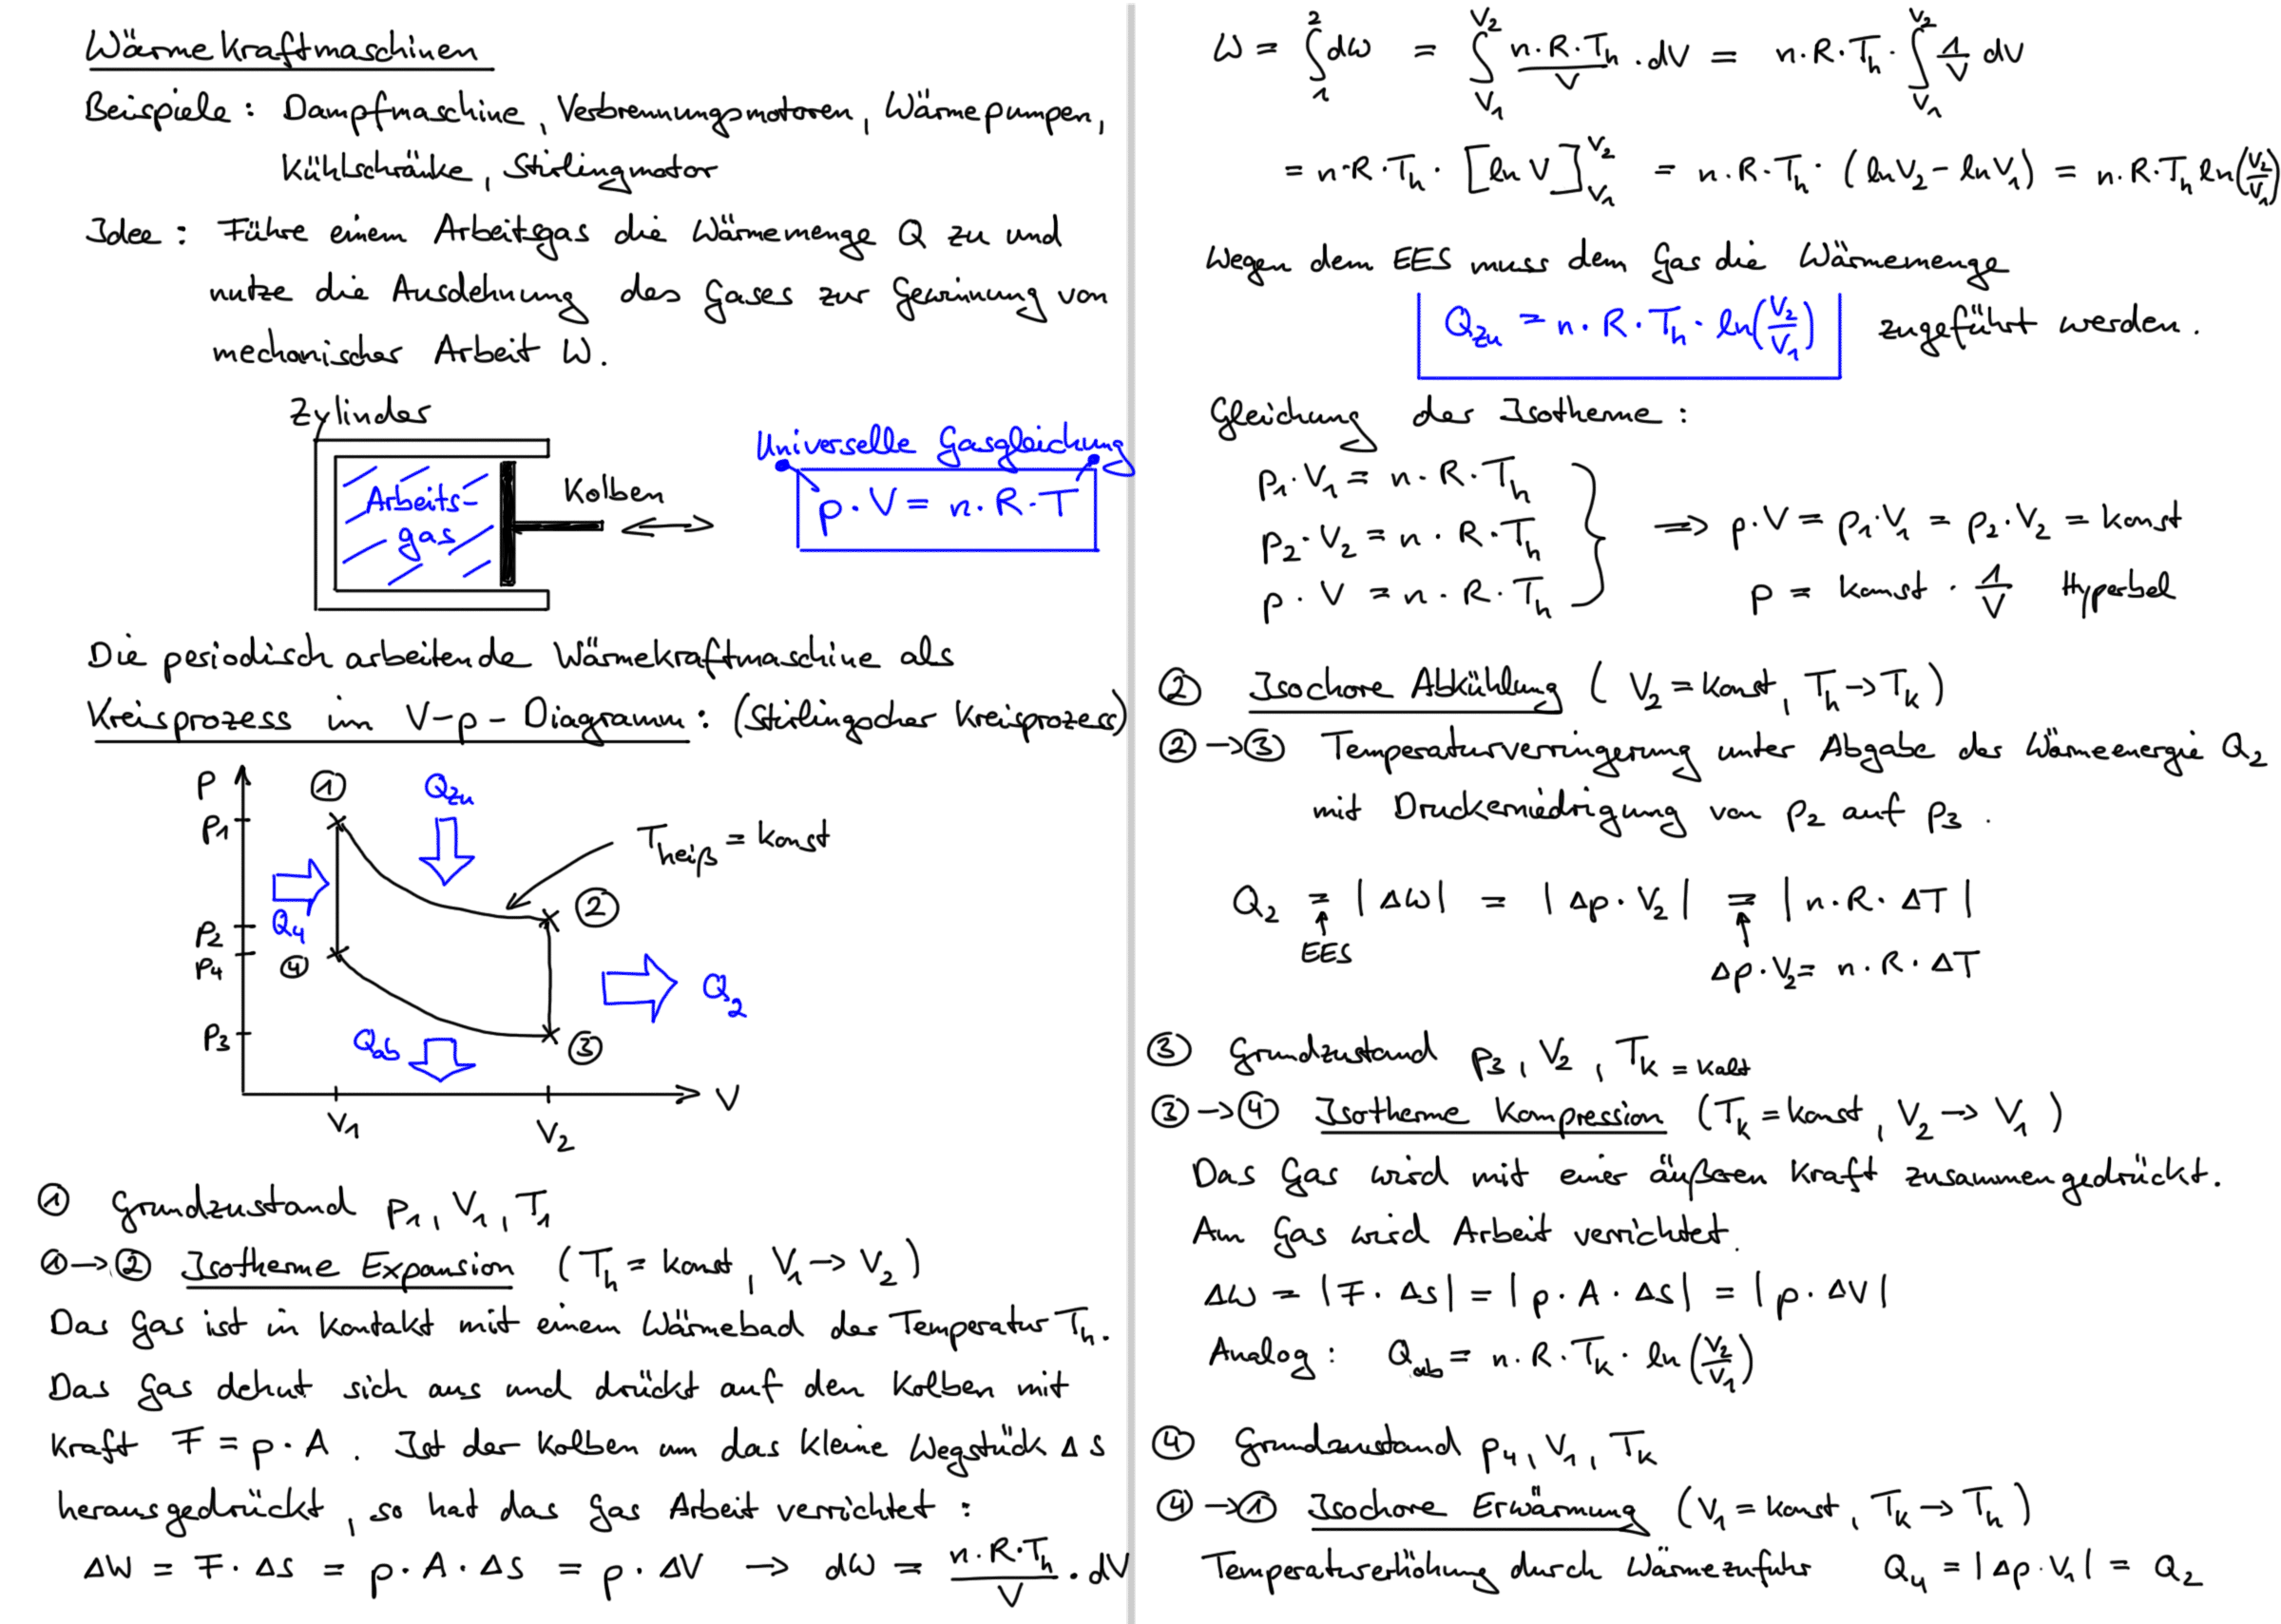 Wärmekraftmaschinen
Beispiele : Dampfmaschine, Verbrennungsmotoren, Wärmepumpen,
Kühlschränke, Stirlingmotor
Idee : Führe einem Arbeitsgas die Wärmemenge Q zu und
nutze die Ausdehnung des Gases zur Gewinnung von
mechanischer Arbeit W.
Zylinder
Arbeits-
gas
Kolben
Universelle Gasgleichung
p · V = n · R · T
Die periodisch arbeitende Wärmekraftmaschine als
Kreisprozess im V-p-Diagramm : (Stirlingscher Kreisprozess)
P
p₁
p₂
p₄
p₃
①
Q_zu
T_heiß = konst
②
Q₄
④
Q₂
Q_ab
③
V₁
V₂
V
① Grundzustand p₁, V₁, T₁
①→② Isotherme Expansion (T_h = konst, V₁ → V₂)
Das Gas ist in Kontakt mit einem Wärmebad der Temperatur T_h.
Das Gas dehnt sich aus und drückt auf den Kolben mit
Kraft F = p · A . Ist der Kolben um das kleine Wegstück Δs
herausgedrückt, so hat das Gas Arbeit verrichtet :
ΔW = F · Δs = p · A · Δs = p · ΔV → dW = n·R·T_h / V · dV
W = ∫₁² dW = ∫_V₁^V₂ n·R·T_h / V · dV = n·R·T_h · ∫_V₁^V₂ 1/V dV
= n·R·T_h · [ln V]_V₁^V₂ = n·R·T_h · (ln V₂ − ln V₁) = n·R·T_h ln(V₂/V₁)
Wegen dem EES muss dem Gas die Wärmemenge
Q_zu = n · R · T_h · ln(V₂/V₁) zugeführt werden.
Gleichung der Isotherme :
p₁·V₁ = n · R · T_h
p₂·V₂ = n · R · T_h
p · V = n · R · T_h
⇒ p · V = p₁·V₁ = p₂·V₂ = konst
p = konst · 1/V Hyperbel
② Isochore Abkühlung ( V₂ = konst, T_h → T_k )
②→③ Temperaturverringerung unter Abgabe der Wärmeenergie Q₂
mit Druckerniedrigung von p₂ auf p₃ .
Q₂ = | ΔW | = | Δp · V₂ | = | n · R · ΔT |
↑
EES
↑
Δp · V₂ = n · R · ΔT
③ Grundzustand p₃, V₂, T_k = kalt
③→④ Isotherme Kompression (T_k = konst, V₂ → V₁)
Das Gas wird mit einer äußeren Kraft zusammengedrückt.
Am Gas wird Arbeit verrichtet.
ΔW = | F · Δs | = | p · A · Δs | = | p · ΔV |
Analog : Q_ab = n · R · T_k · ln(V₂/V₁)
④ Grundzustand p₄, V₁, T_k
④→① Isochore Erwärmung (V₁ = konst, T_k → T_h)
Temperaturerhöhung durch Wärmezufuhr Q₄ = | Δp · V₁ | = Q₂